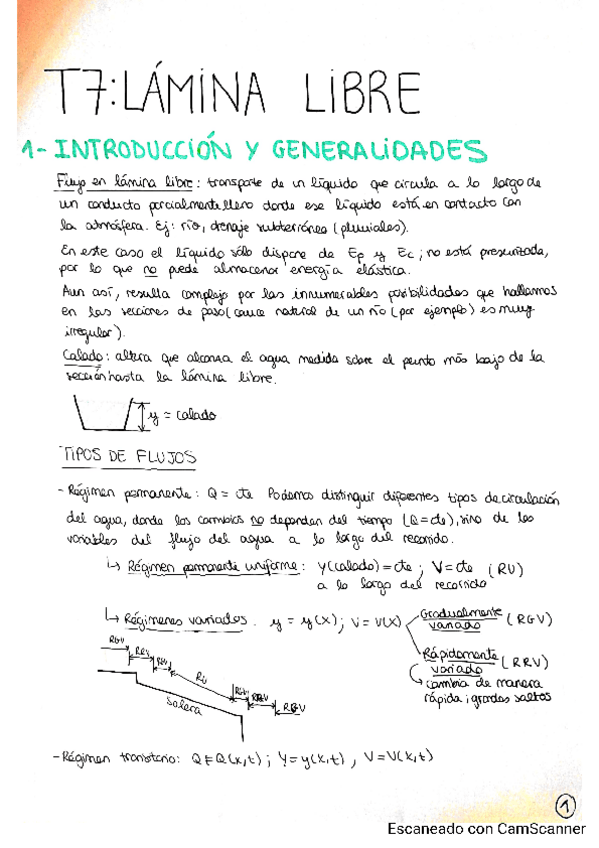 T7: LÁMINA LIBRE
1- INTRODUCCIÓN Y GENERALIDADES
Flujo en lámina libre: transporte de un líquido que circula a lo largo de
un conducto parcialmente lleno donde ese líquido está en contacto con
la atmósfera. Ej: río, drenaje subterráneo (pluviales).
En este caso el líquido sólo dispone de Ep y Ec; no está presurizada,
por lo que no puede almacenar energía elástica.
Aun así, resulta complejo por las innumerables posibilidades que hallamos
en las secciones de paso (cauce natural de un río (por ejemplo) es muy
irregular).
Calado: altura que alcanza el agua medida sobre el punto más bajo de la
sección hasta la lámina libre.
y = calado
TIPOS DE FLUJOS
- Régimen permanente: Q = cte Podemos distinguir diferentes tipos de circulación
del agua, donde los cambios no dependen del tiempo (Q=cte), sino de las
variables del flujo del agua a lo largo del recorrido.
↳ Régimen permanente uniforme: y(calado) = cte; V = cte (RU)
a lo largo del recorrido
↳ Régimenes variados. y = y(x); v = v(x)
Gradualmente variado (RGV)
Rápidamente variado (RRV)
↳ cambia de manera
rápida; grandes saltos
RGV
RRV
RGV
RU
RGV
RRV
RGV
Solera
- Régimen transitorio: Q = Q(x,t); Y = y(x,t), V = V(x,t)
1
Escaneado con CamScanner